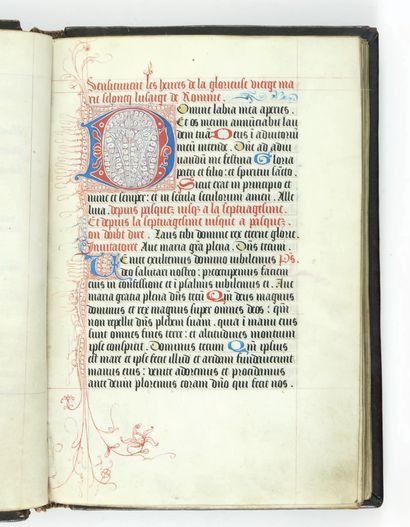 Sensieuent les heures de la glorieuse vierge ma
rie selonc lusaige de Romme.
Domine labia mea aperies.
Et os meum annuciabit lau
dem tuã Deus i adiutoriũ
meũ intende. Dñe ad adiu
uandũ me festina Gloria
patri et filio: et spiritui sãcto.
Sicut erat in principio et
nunc et semper: et in secula seculorum amen. Alle
luia. depuis pasques iusqs a la septuagesime.
Et depuis la septuagesime iusque a pasques
on doibt dire. Laus tibi domine rex eterne glorie.
Inuitatore Aue maria grã plena. Dñs tecum.
Uenite exultemus domino iubilemus Ps.
deo salutari nostro: preocupemus faciem
eius in confessione et i psalmis iubilemus ei. Aue
maria gratia plena dñs tecũ Qm̃ deus magnus
dominus et rex magnus super omnes deos: qm̃
non repellit dñs plebem suam. quia i manu eius
sunt omnes fines terre: et altitudines montium
ipse conspicit. Dominus tecum Qm̃ ipsius
est mare et ipse fecit illud et aridam fundauerunt
manus eius: venite adoremus et procidamus
ante deum ploremus coram dño qui fecit nos.